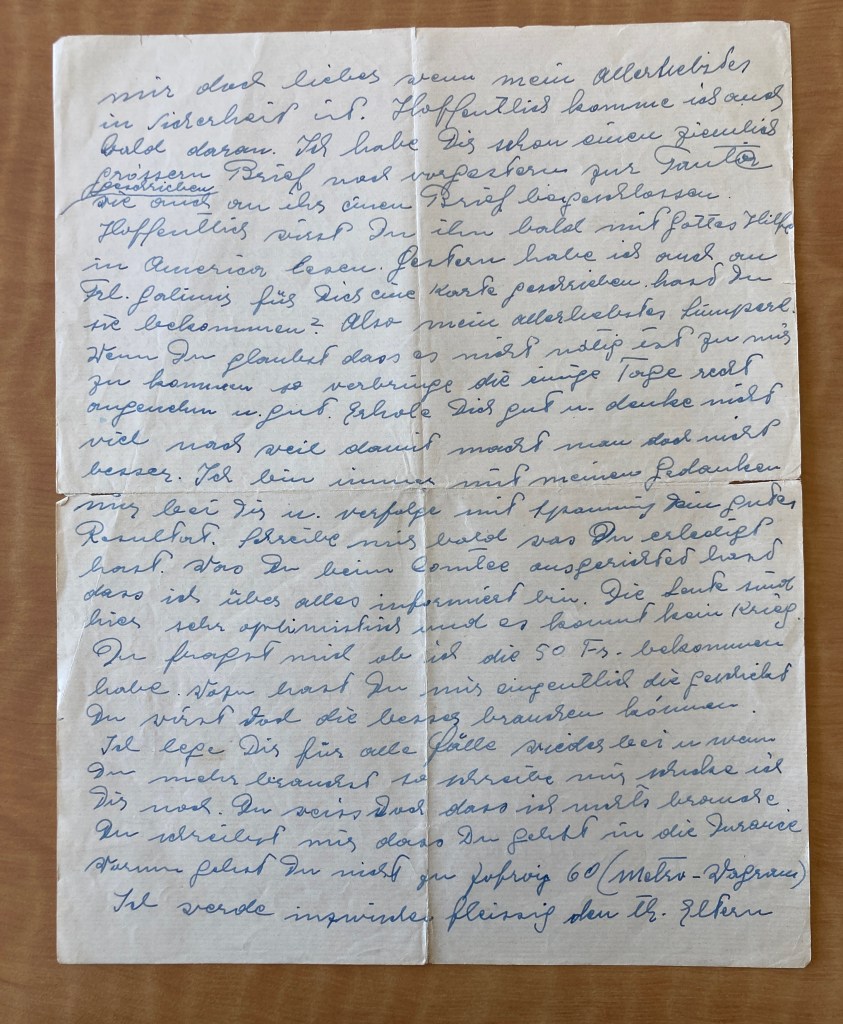 mir doch lieber wenn mein allerliebstes
in Sicherheit ist. Hoffentlich komme ich auch
bald daran. Ich habe Dir schon einen ziemlich
grössern Brief noch vorgestern zur Tante
geschrieben
wie auch an ihr einen Brief beigeschlossen.
Hoffentlich wirst Du ihn bald mit Gottes Hilfe
in America lesen. Gestern habe ich auch an
Frl. für Dich eine Karte geschrieben hast Du
sie bekommen? Also mein allerliebstes Lumperl.
Wenn Du glaubst dass es nicht nötig ist zu mir
zu kommen so verbringe die einige Tage recht
angenehm u. gut. Erhole Dich gut u. denke nicht
viel nach weil damit macht man doch nicht
besser. Ich bin immer mit meinen Gedanken
nur bei Dir u. verfolge mit Spannung Dein gutes
Resultat. Schreibe mir bald was Du erledigt
hast. Was Du beim Comitee ausgerichtet hast
dass ich über alles informiert bin. Die Leute sind
hier sehr optimistisch und es kommt kein Krieg.
Du fragst mich ob ich die 50 Fr. bekommen
habe. Wozu hast Du mir eigentlich die geschickt
Du wirst doch die besser brauchen können.
Ich lege Dir für alle Fälle wieder bei u wenn
Du mehr brauchst so schreibe mir schicke ich
Dir noch. Du weiss doch dass ich nichts brauche.
Du schreibst mir dass Du gehst in die
Warum gehst Du nicht zu 60 (Metro-Wagram)
Ich werde inzwischen fleissig den lb. Eltern